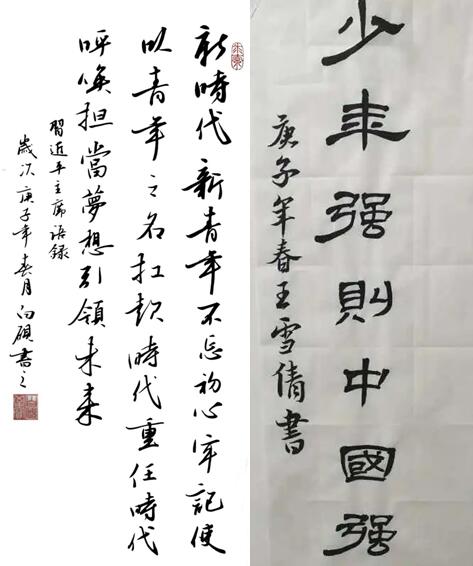 新時代新青年不忘初心牢記使
以青年之名扛起時代重任時代
呼喚担當夢想引領未来
習近平主席語録
歲次庚子年春月書之
少年强則中國强
庚子年春王雪倩書